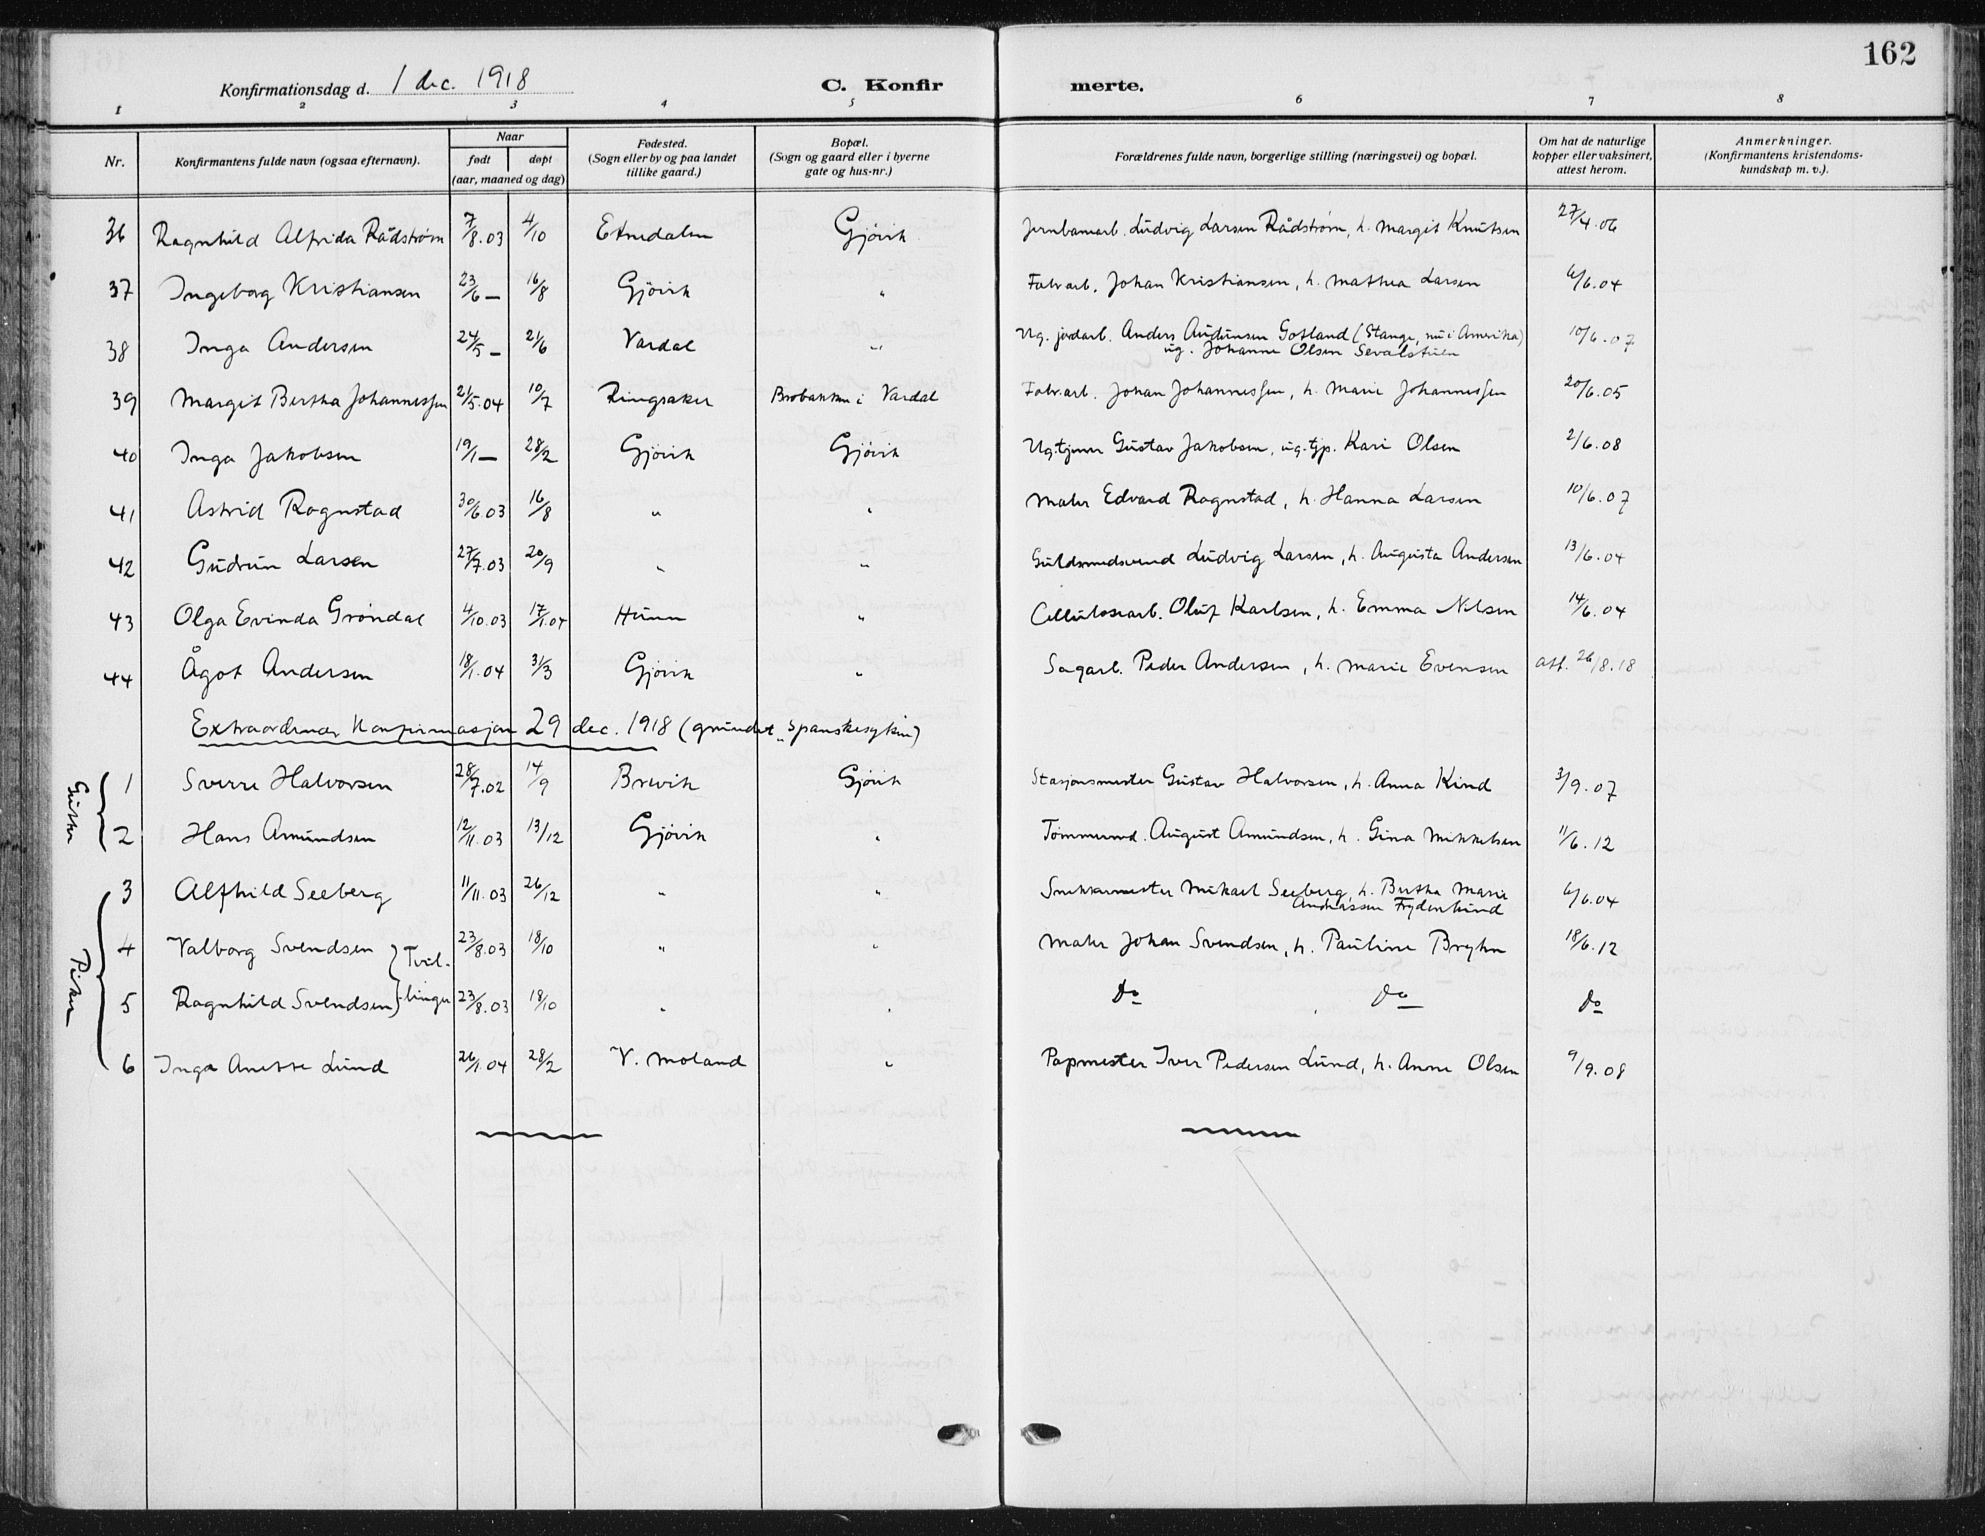 162
Konfirmationsdag d. 1 dec. 1918 C. Konfirmerte.
1 2 3 4 5 6 7 8
Nr. Konfirmantens fulde navn (ogsaa efternavn). Naar født døpt (aar, maaned og dag) Fødested. (Sogn eller by og paa landet tillike gaard.) Bopæl. (Sogn og gaard eller i byerne gate og hus-nr.) Forældrenes fulde navn, borgerlige stilling (næringsvei) og bopæl. Om hat de naturlige kopper eller vaksinert, attest herom. Anmerkninger. (Konfirmantens kristendoms-kundskap m. v.).
36 Ragnhild Alfrida Rådstrøm 7/8.03 4/10 Etnedalen Gjövik Jernbanearb. Ludvig Larsen Rådstrøm, h. Margit Knutsen 27/4.06
37 Ingeborg Kristiansen 23/6 — 16/8 Gjövik " Fabr.arb. Johan Kristiansen, h. Mathea Larsen 6/6.04
38 Inga Andersen 24/5 — 21/6 Vardal " Ug. jordarb. Anders Audunsen Gotland (Stange, nu i Amerika)
ug. Johanne Olsen Sevalstuen 10/6.07
39 Margit Bertha Johannessen 21/5.04 10/7 Ringsaker Brobakken i Vardal Fabr.arb. Johan Johannessen, h. Marie Johannessen 20/6.05
40 Inga Jakobsen 19/1 — 28/2 Gjövik Gjövik Ug. tjener Gustav Jakobsen, ug. tjp. Kari Olsen 2/6.08
41 Astrid Rognstad 30/6.03 16/8 " " Maler Edvard Rognstad, h. Hanna Larsen 10/6.07
42 Gudrun Larsen 27/7.03 20/9 " " Guldsmedsvend Ludvig Larsen, h. Augusta Andersen 13/6.04
43 Olga Evinda Gröndal 4/10.03 17/1.04 Hunn " Cellulosearb. Oluf Karlsen, h. Emma Nilsen 14/6.04
44 Ågot Andersen 18/1.04 3/3 Gjövik " Sagarb. Peder Andersen, h. Marie Evensen att. 26/8.18
Extraordinær Konfirmasjon 29 dec. 1918 (grundet "Spanskesyken)
Gutter
1 Sverre Halvorsen 28/7.02 14/9 Brevik Gjövik Stasjonsmester Gustav Halvorsen, h. Anna Kind 3/9.07
2 Hans Amundsen 12/11.03 13/12 Gjövik " Tömmermd. August Amundsen, h. Gina Mikkelsen 11/6.12
Piker
3 Alfhild Seeberg 11/11.03 26/12 " " Snekkermester Mikael Seeberg, h. Bertha Marie
Andreassen Frydenlund 6/6.04
4 Valborg Svendsen } Tvil- 23/8.03 18/10 " " Maler Johan Svendsen, h. Pauline Bryhn 18/6.12
5 Ragnhild Svendsen } linger 23/8.03 18/10 " " do do do
6 Inga Anette Lund 26/1.04 28/2 V. Moland " Papmester Iver Pedersen Lund, h. Anne Olsen 9/9.08